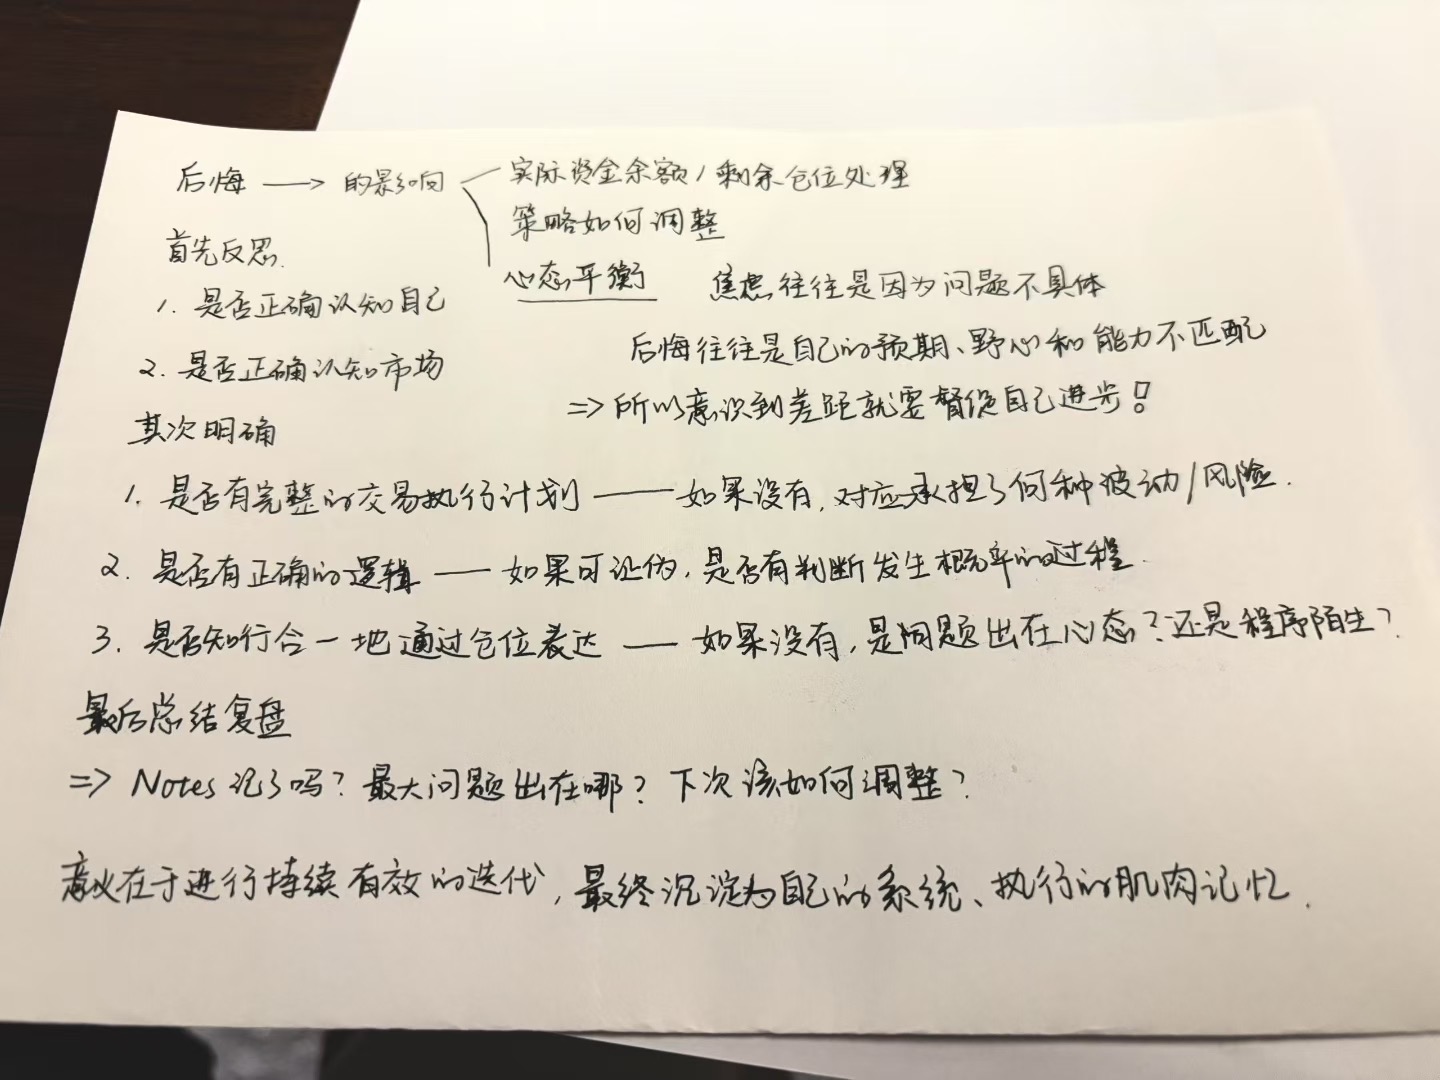 后悔 —> 的影响 实际资金余额/剩余仓位处理
策略如何调整
首先反思.
心态平衡 焦虑往往是因为问题不具体
1. 是否正确认知自己
后悔往往是自己的预期、野心和能力不匹配
2. 是否正确认知市场
=> 所以意识到差距就要督促自己进步!
其次明确
1. 是否有完整的交易执行计划 —— 如果没有, 对应承担了何种波动/风险.
2. 是否有正确的逻辑 —— 如果可证伪, 是否有判断发生概率的过程.
3. 是否知行合一地通过仓位表达 —— 如果没有, 是问题出在心态? 还是程序陌生?
最后总结复盘
=> Notes 记了吗? 最大问题出在哪? 下次该如何调整?
意义在于进行持续有效的迭代, 最终沉淀为自己的系统、执行的肌肉记忆.